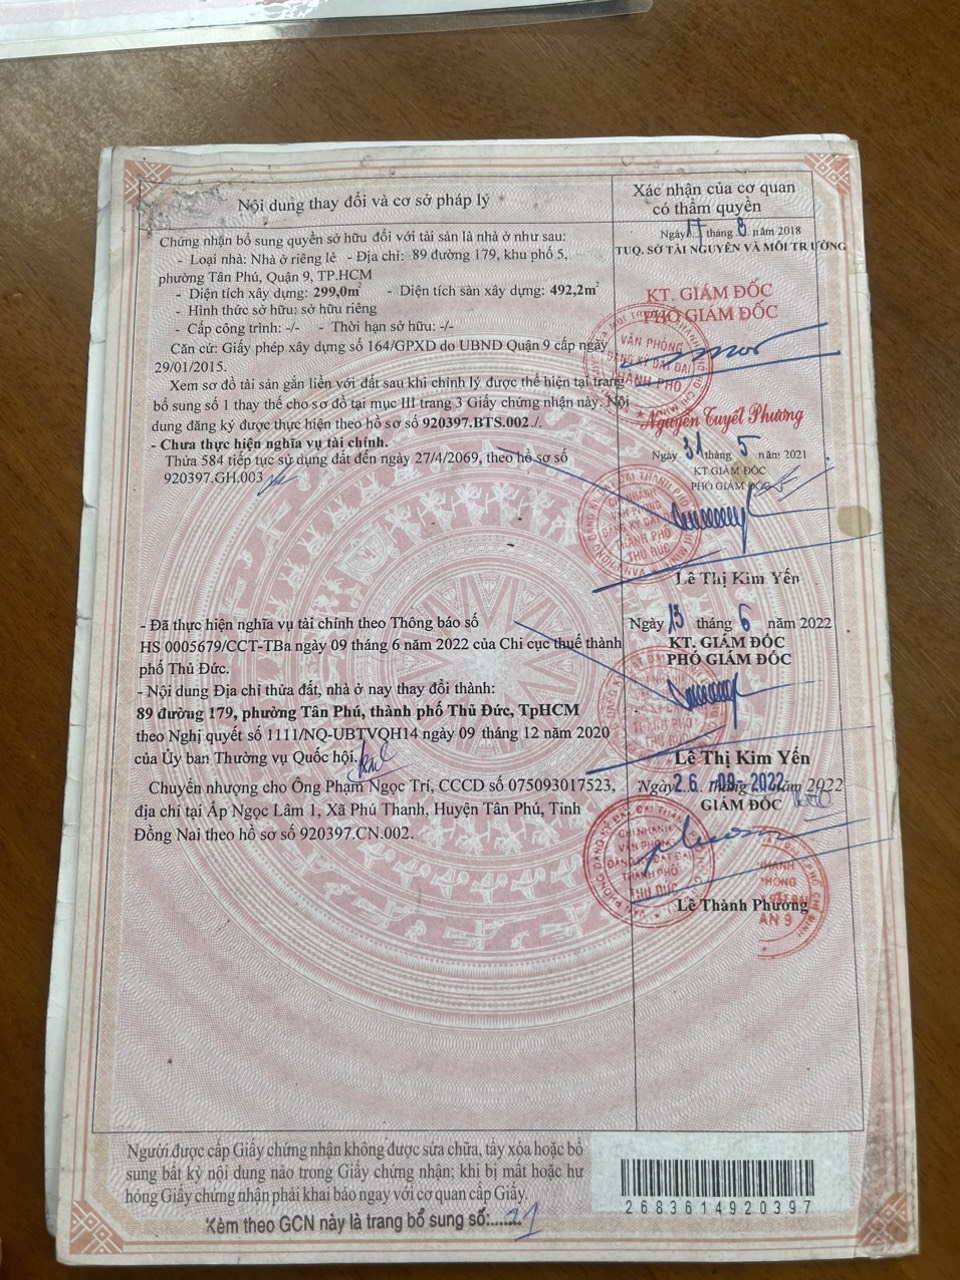 Nội dung thay đổi và cơ sở pháp lý
Xác nhận của cơ quan
có thẩm quyền
Chứng nhận bổ sung quyền sở hữu đối với tài sản là nhà ở như sau:
- Loại nhà: Nhà ở riêng lẻ - Địa chỉ: 89 đường 179, khu phố 5,
phường Tân Phú, Quận 9, TP.HCM
- Diện tích xây dựng: 299,0m² - Diện tích sàn xây dựng: 492,2m²
- Hình thức sở hữu: sở hữu riêng
- Cấp công trình: -/- - Thời hạn sở hữu: -/-
Căn cứ: Giấy phép xây dựng số 164/GPXD do UBND Quận 9 cấp ngày
29/01/2015.
Xem sơ đồ tài sản gắn liền với đất sau khi chỉnh lý được thể hiện tại trang
bổ sung số 1 thay thế cho sơ đồ tại mục III trang 3 Giấy chứng nhận này. Nội
dung đăng ký được thực hiện theo hồ sơ số 920397.BTS.002./.
- Chưa thực hiện nghĩa vụ tài chính.
Ngày 17 tháng 8 năm 2018
TUQ. SỞ TÀI NGUYÊN VÀ MÔI TRƯỜNG
KT. GIÁM ĐỐC
PHÓ GIÁM ĐỐC
VĂN PHÒNG
ĐĂNG KÝ ĐẤT ĐAI
THÀNH PHỐ
Nguyễn Tuyết Phương
Thửa 584 tiếp tục sử dụng đất đến ngày 27/4/2069, theo hồ sơ số
920397.GH.003
Ngày 31 tháng 5 năm 2021
KT GIÁM ĐỐC
PHÓ GIÁM ĐỐC
CHI NHÁNH
VĂN PHÒNG
ĐĂNG KÝ ĐẤT ĐAI
THÀNH PHỐ
THỦ ĐỨC
Lê Thị Kim Yến
- Đã thực hiện nghĩa vụ tài chính theo Thông báo số
HS 0005679/CCT-TBa ngày 09 tháng 6 năm 2022 của Chi cục thuế thành
phố Thủ Đức.
- Nội dung Địa chỉ thửa đất, nhà ở nay thay đổi thành:
89 đường 179, phường Tân Phú, thành phố Thủ Đức, TpHCM
theo Nghị quyết số 1111/NQ-UBTVQH14 ngày 09 tháng 12 năm 2020
của Ủy ban Thường vụ Quốc hội.
Ngày 13 tháng 6 năm 2022
KT. GIÁM ĐỐC
PHÓ GIÁM ĐỐC
Lê Thị Kim Yến
Chuyển nhượng cho Ông Phạm Ngọc Trí, CCCD số 075093017523,
địa chỉ tại Ấp Ngọc Lâm 1, Xã Phú Thanh, Huyện Tân Phú, Tỉnh
Đồng Nai theo hồ sơ số 920397.CN.002.
Ngày 26 -09- 2022 năm 2022
GIÁM ĐỐC
CHI NHÁNH
VĂN PHÒNG
ĐĂNG KÝ ĐẤT ĐAI
THÀNH PHỐ
THỦ ĐỨC
Lê Thành Phương
Người được cấp Giấy chứng nhận không được sửa chữa, tẩy xóa hoặc bổ
sung bất kỳ nội dung nào trong Giấy chứng nhận; khi bị mất hoặc hư
hỏng Giấy chứng nhận phải khai báo ngay với cơ quan cấp Giấy.
Kèm theo GCN này là trang bổ sung số:
2683614920397